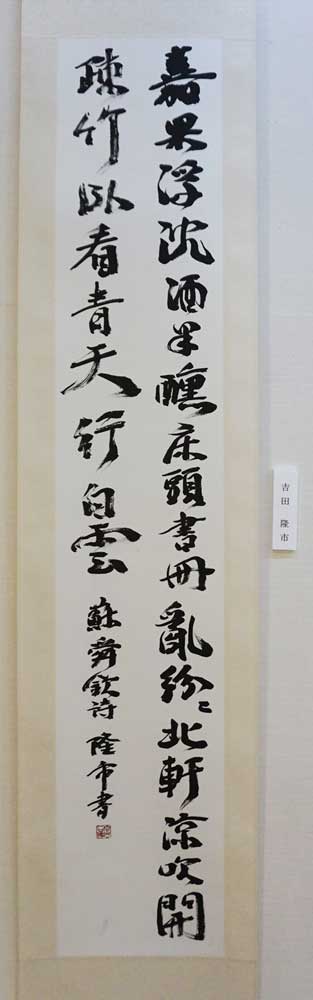 嘉果浮沈酒半醺床頭書冊亂紛〻北軒涼吹開
疎竹臥看青天行白雲 蘇舜欽詩 隆市書
吉田 隆市